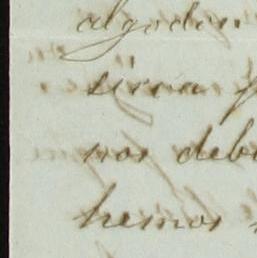 algodon
sirva
nos deb
hemos